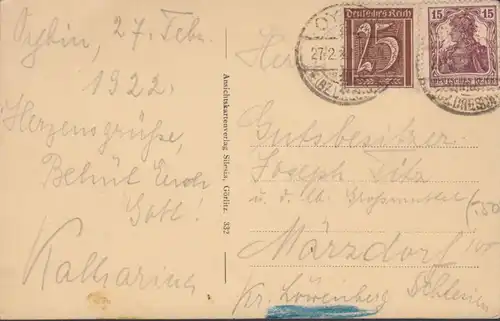 Oybin, 27. Febr.
1922.
Herzensgrüße,
Behüt Euch
Gott!
Katharina
Ansichtskartenverlag Silesia, Görlitz. 332
Deutsches Reich
25
15 15
DEUTSCHES REICH
27.2.
Gutsbesitzer
Joseph
u. d. lb. Großmutter
Märzdorf
Kr. Löwenberg Schlesien